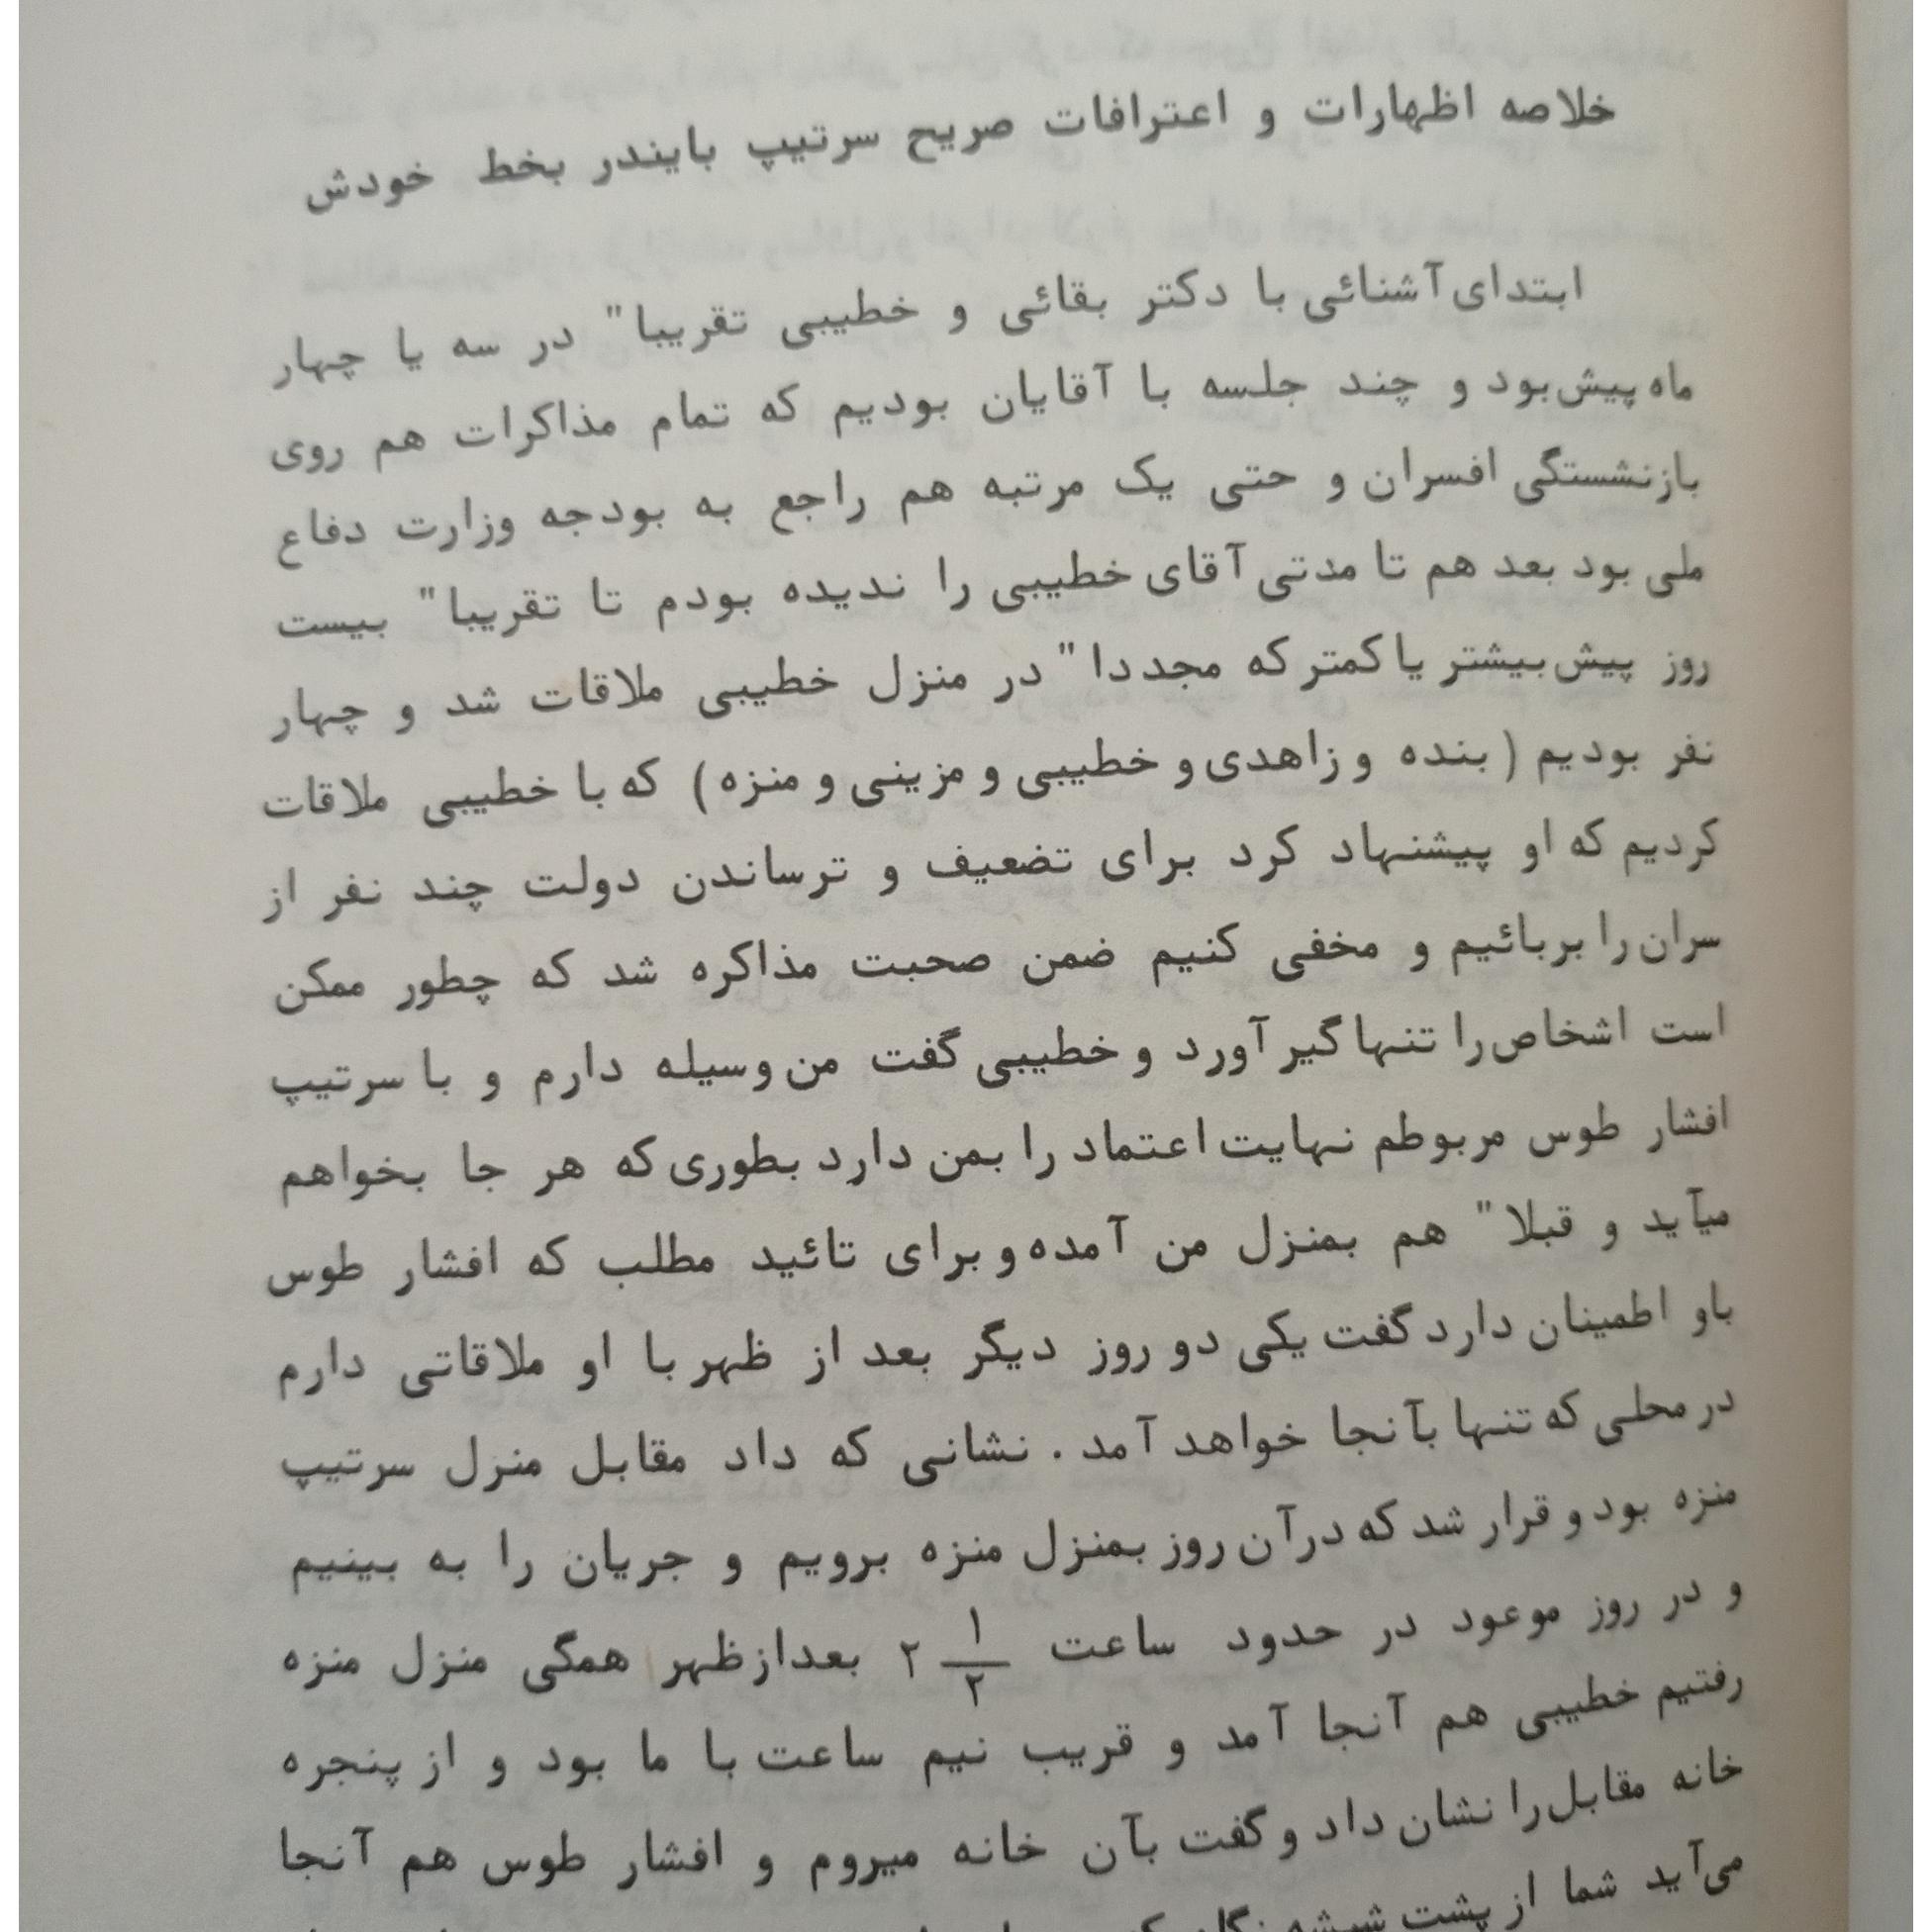 خلاصه اظهارات و اعترافات صریح سرتیپ بایندر بخط خودش
ابتدای آشنائی با دکتر بقائی و خطیبی تقریبا" در سه یا چهار
ماه پیش بود و چند جلسه با آقایان بودیم که تمام مذاکرات هم روی
بازنشستگی افسران و حتی یک مرتبه هم راجع به بودجه وزارت دفاع
ملی بود بعد هم تا مدتی آقای خطیبی را ندیده بودم تا تقریبا" بیست
روز پیش بیشتر یا کمتر که مجددا" در منزل خطیبی ملاقات شد و چهار
نفر بودیم (بنده و زاهدی و خطیبی و مزینی و منزه) که با خطیبی ملاقات
کردیم که او پیشنهاد کرد برای تضعیف و ترساندن دولت چند نفر از
سران را بربائیم و مخفی کنیم ضمن صحبت مذاکره شد که چطور ممکن
است اشخاص را تنها گیر آورد و خطیبی گفت من وسیله دارم و با سرتیپ
افشار طوس مربوطم نهایت اعتماد را بمن دارد بطوری که هر جا بخواهم
میآید و قبلا" هم بمنزل من آمده و برای تائید مطلب که افشار طوس
باو اطمینان دارد گفت یکی دو روز دیگر بعد از ظهر با او ملاقاتی دارم
در محلی که تنها بآنجا خواهد آمد . نشانی که داد مقابل منزل سرتیپ
منزه بود و قرار شد که درآن روز بمنزل منزه برویم و جریان را به بینیم
و در روز موعود در حدود ساعت ۲ ۱/۲ بعدازظهر همگی منزل منزه
رفتیم خطیبی هم آنجا آمد و قریب نیم ساعت با ما بود و از پنجره
خانه مقابل را نشان داد و گفت بآن خانه میروم و افشار طوس هم آنجا
می‌آید شما از پشت شیشه